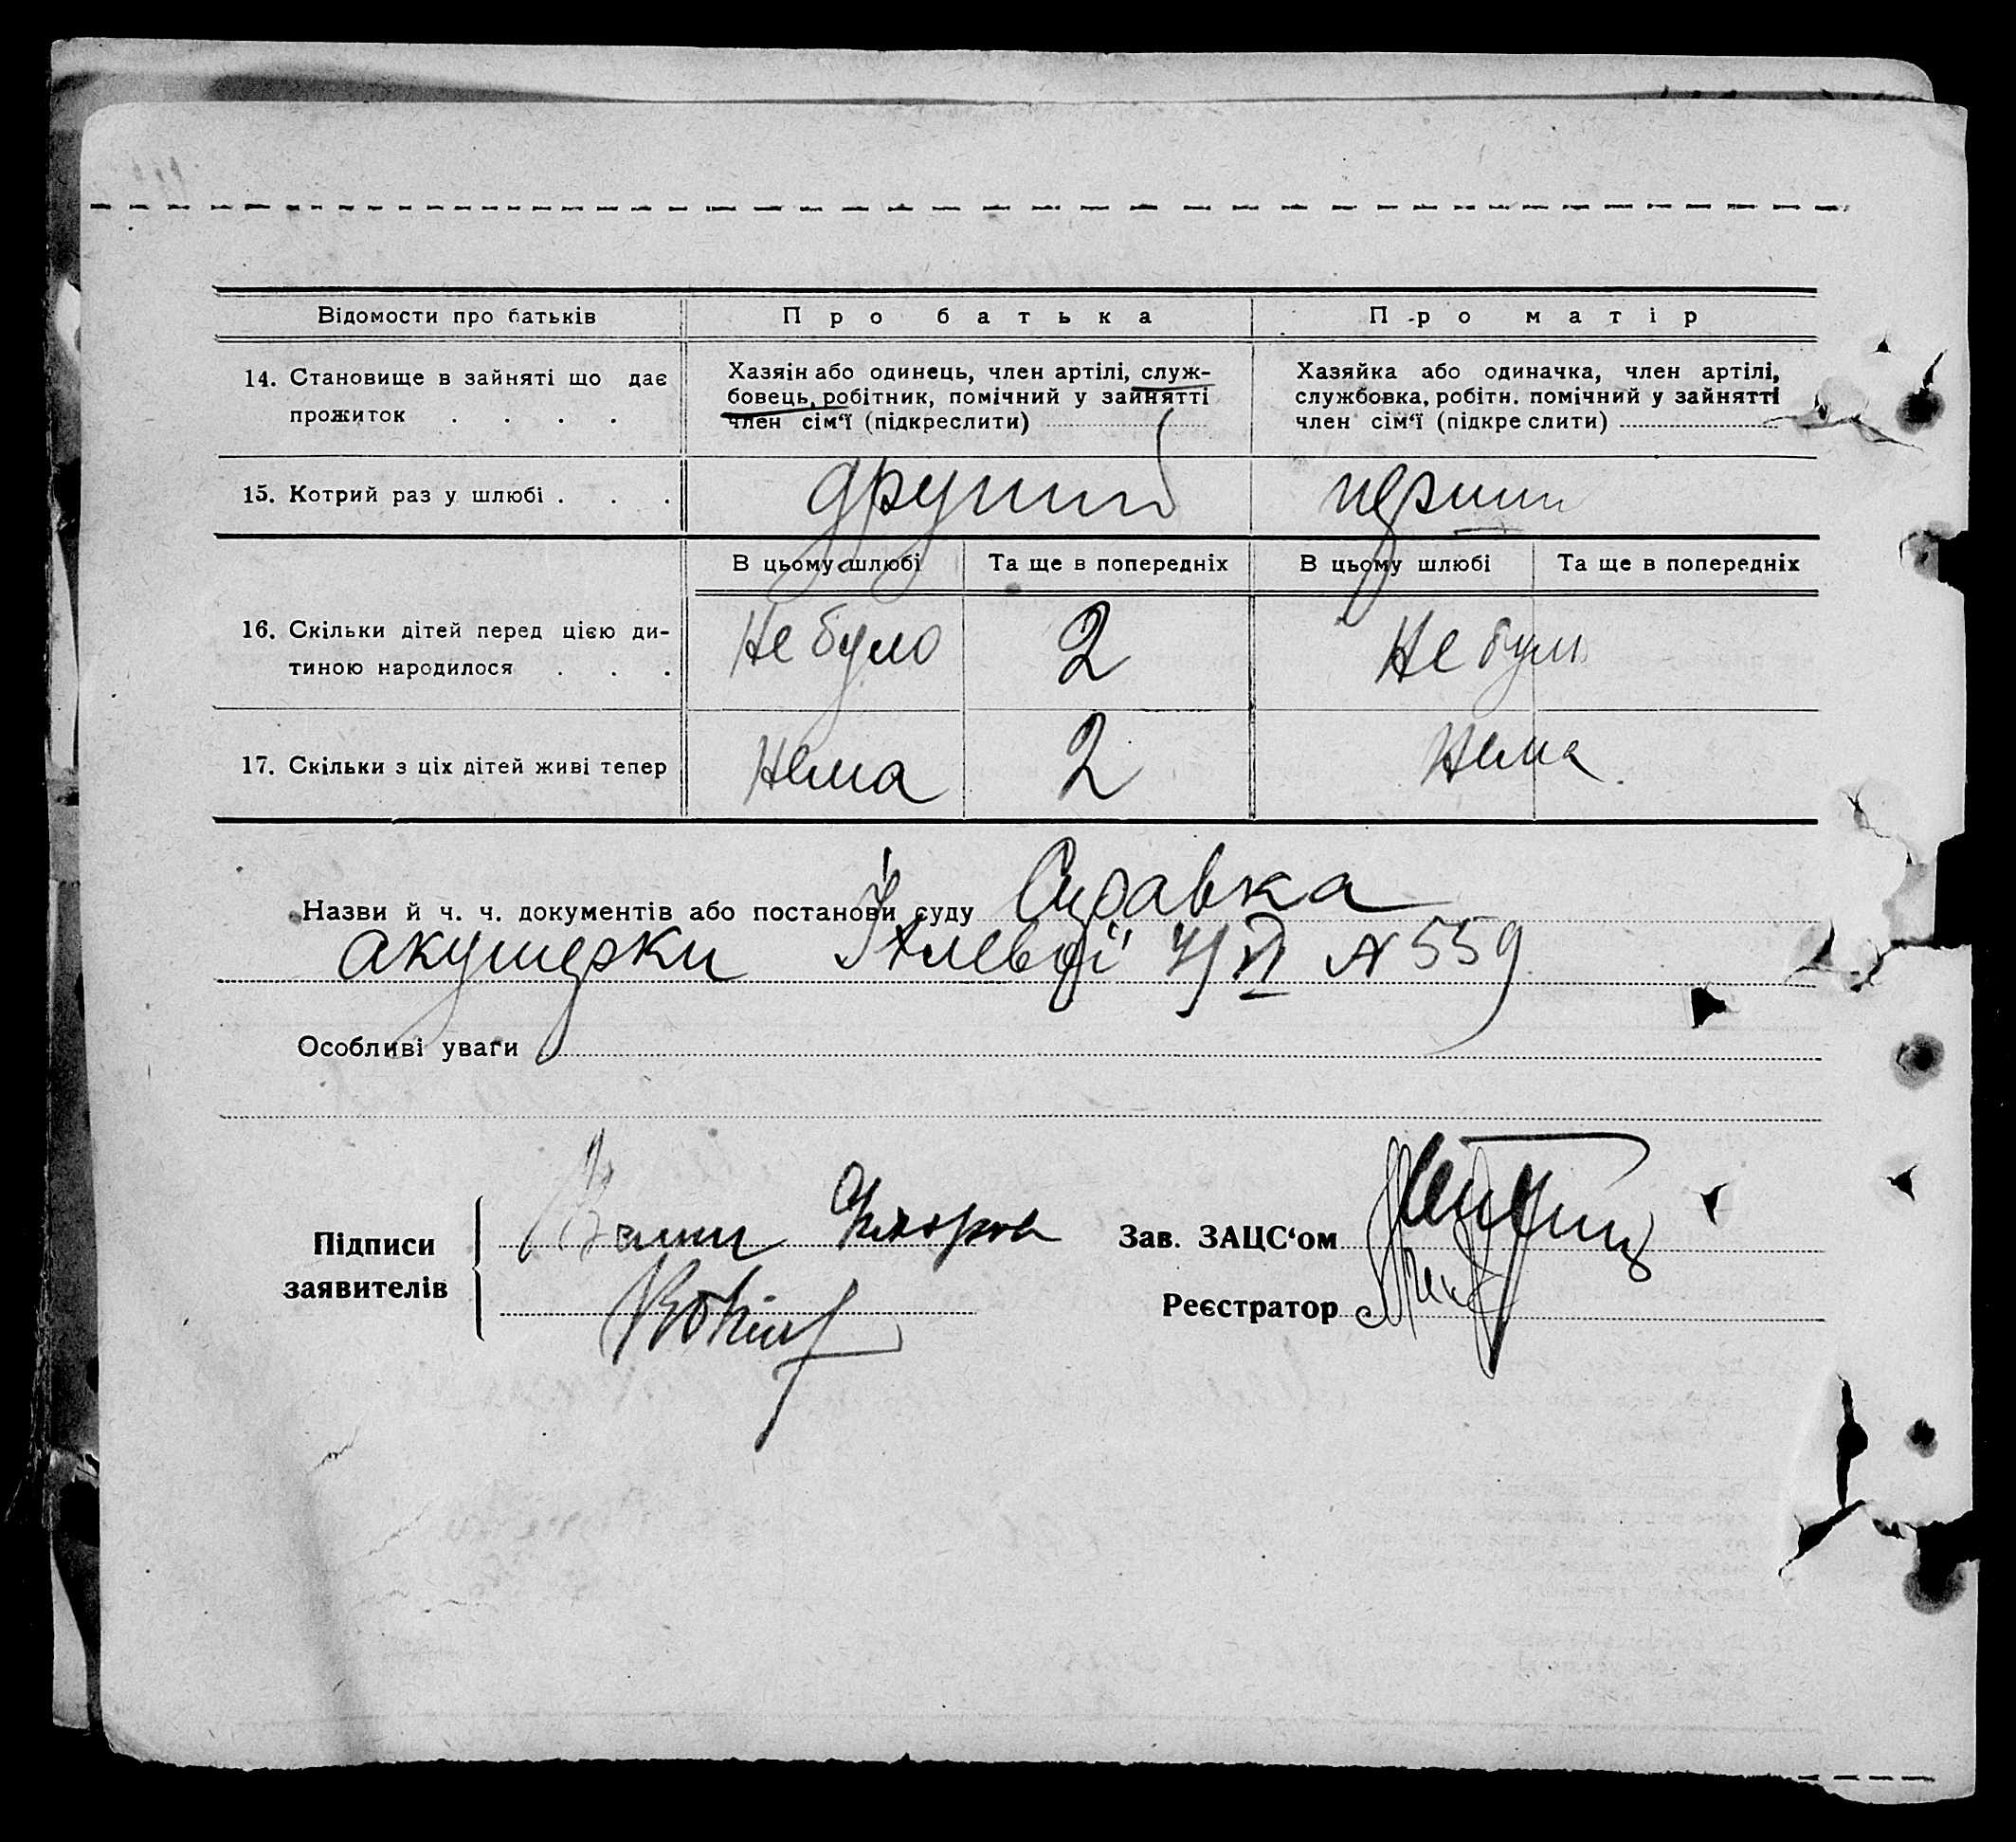 Відомости про батьків
Про батька
Про матір
14. Становище в зайняті що дає
прожиток . . . .
Хазяін або одинець, член артілі, служ-
бовець, робітник, помічний у зайнятті
член сім‘ї (підкреслити)
Хазяйка або одиначка, член артілі,
службовка, робітн. помічний у зайнятті
член сім‘ї (підкреслити)
15. Котрий раз у шлюбі . . .
другий
перший
В цьому шлюбі
Та ще в попередніх
В цьому шлюбі
Та ще в попередніх
16. Скільки дітей перед цією ди-
тиною народилося . . .
Не було
2
Не було
17. Скільки з ціх дітей живі тепер
Нема
2
Нема
Назви й ч. ч. документів або постанови суду Справка
акушерки 4/VI № 559
Особливі уваги
Підписи
заявителів
Зав. ЗАЦС‘ом
Реєстратор